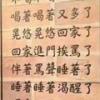 喝著喝著又多了
晃悠晃悠回家了
回家進門挨罵了
伴著罵聲睡著了
睡著睡著渴醒了